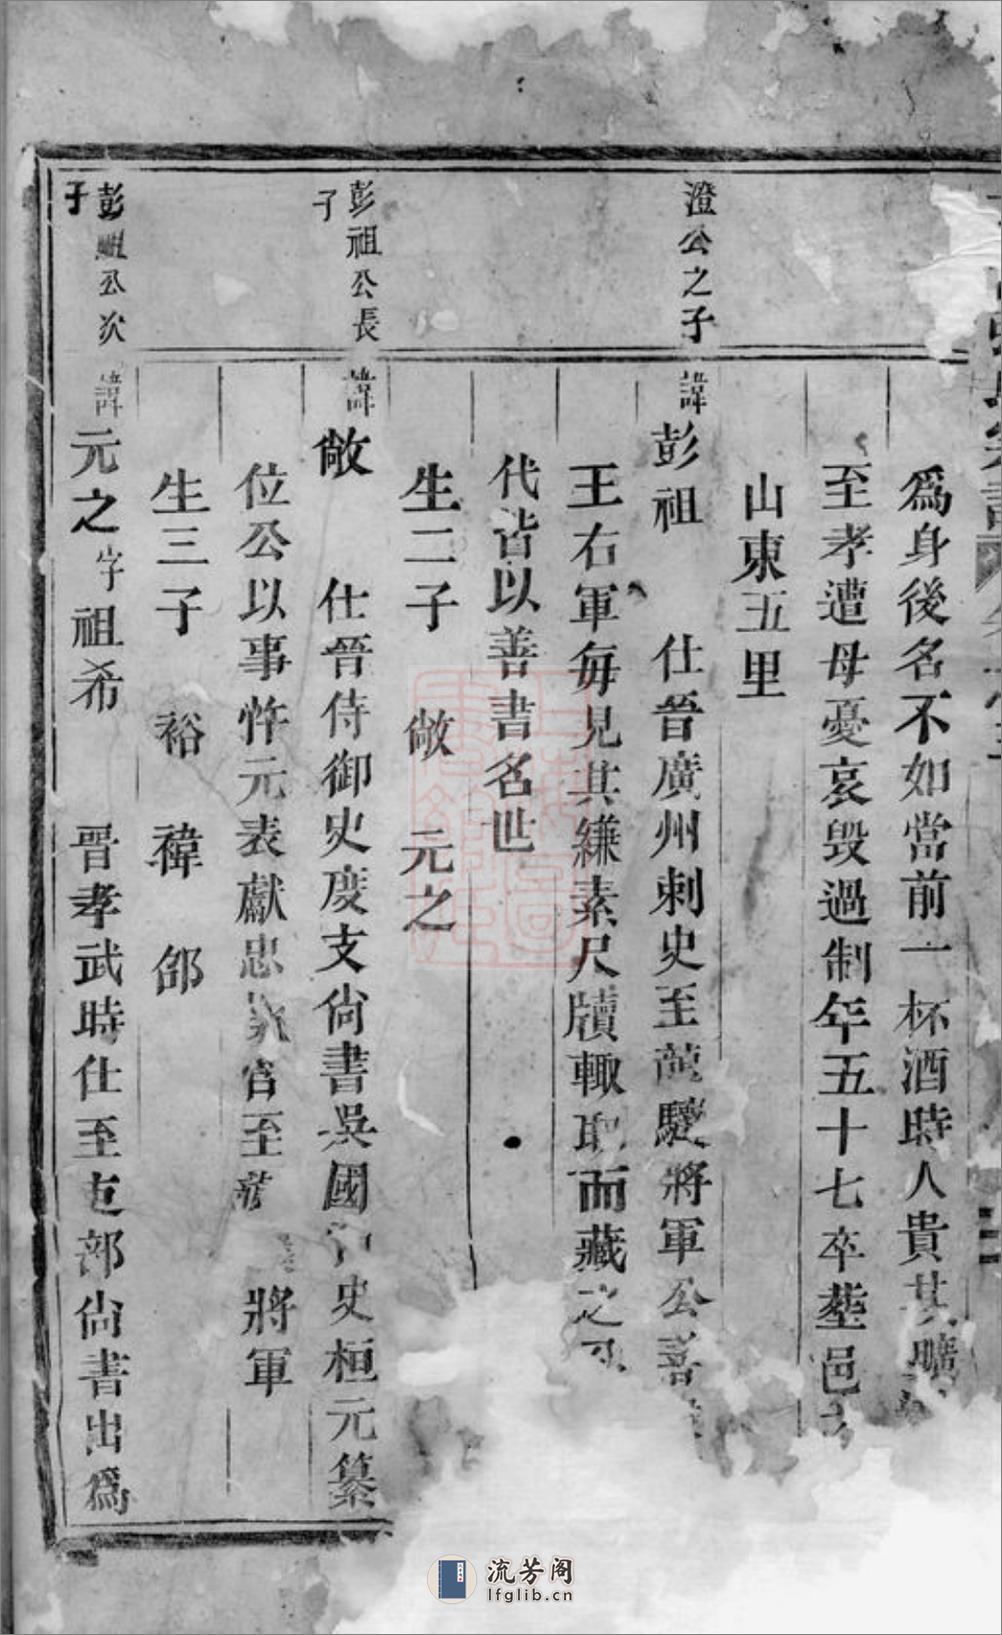 爲身後名不如當前一杯酒時人貴其曠
至孝遭母憂哀毀過制年五十七卒塟邑
山東五里
澄公之子
諱彭祖 仕晉廣州刺史至龍驤將軍公善
王右軍每見其縑素尺牘輒取而藏之
代皆以善書名世
生二子 敞 元之
彭祖公長子
諱敞 仕晉侍御史度支尙書吳國內史桓元篡
位公以事忤元表獻忠 官至龍 將軍
生三子 裕 禕 邵
彭祖公次子
諱元之字祖希 晉孝武時仕至吏部尙書出爲
流芳阁
lfglib.cn